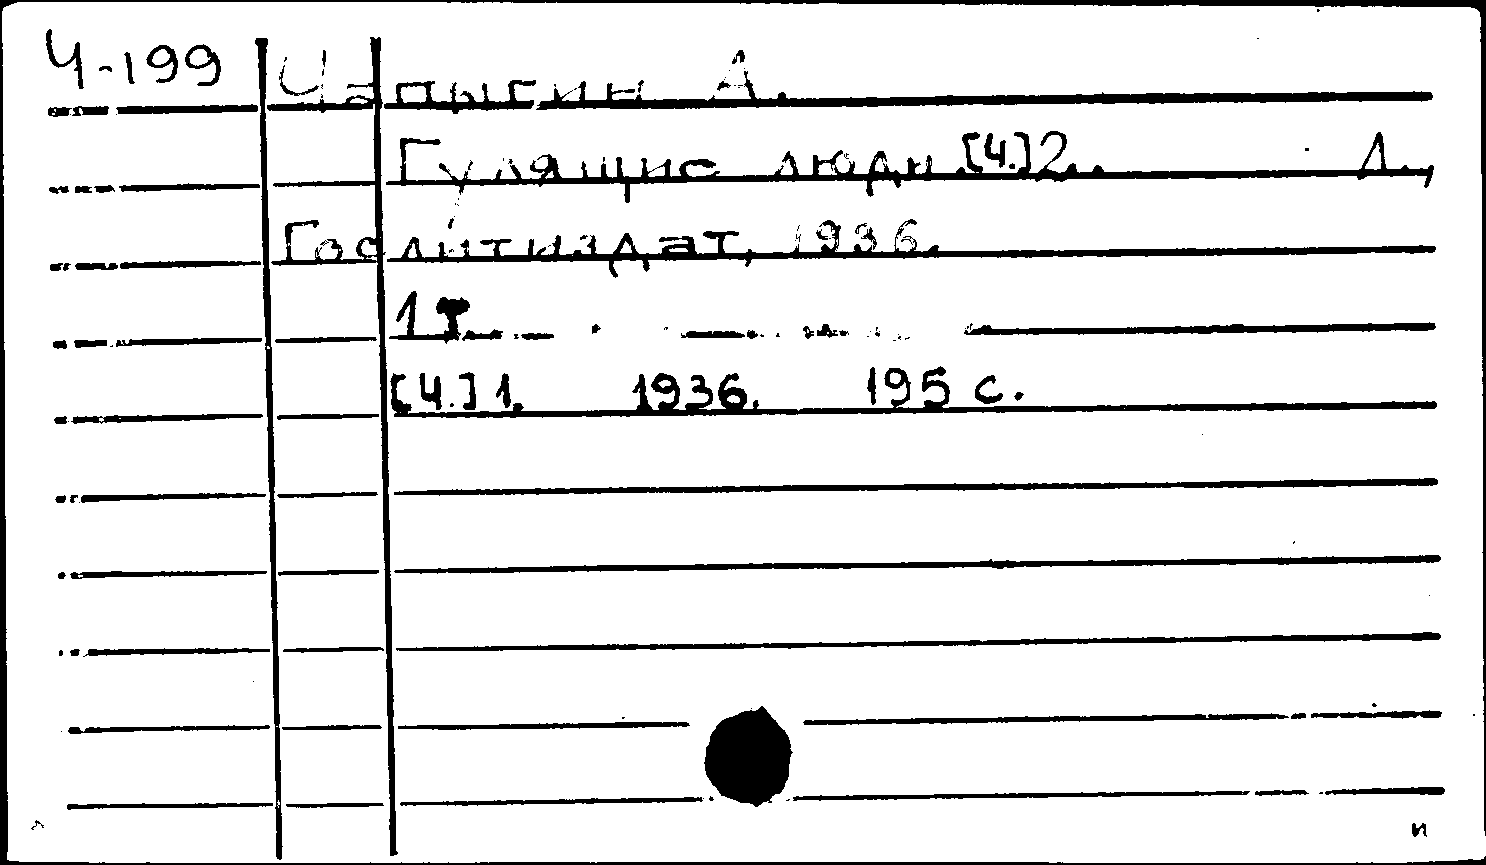 Ч-199 Чапыгин А.
Гулящие люди [Ч.]2.. Л.,
Гослитиздат, 1936.
1
[Ч.] 1. 1936. 195 с.
и